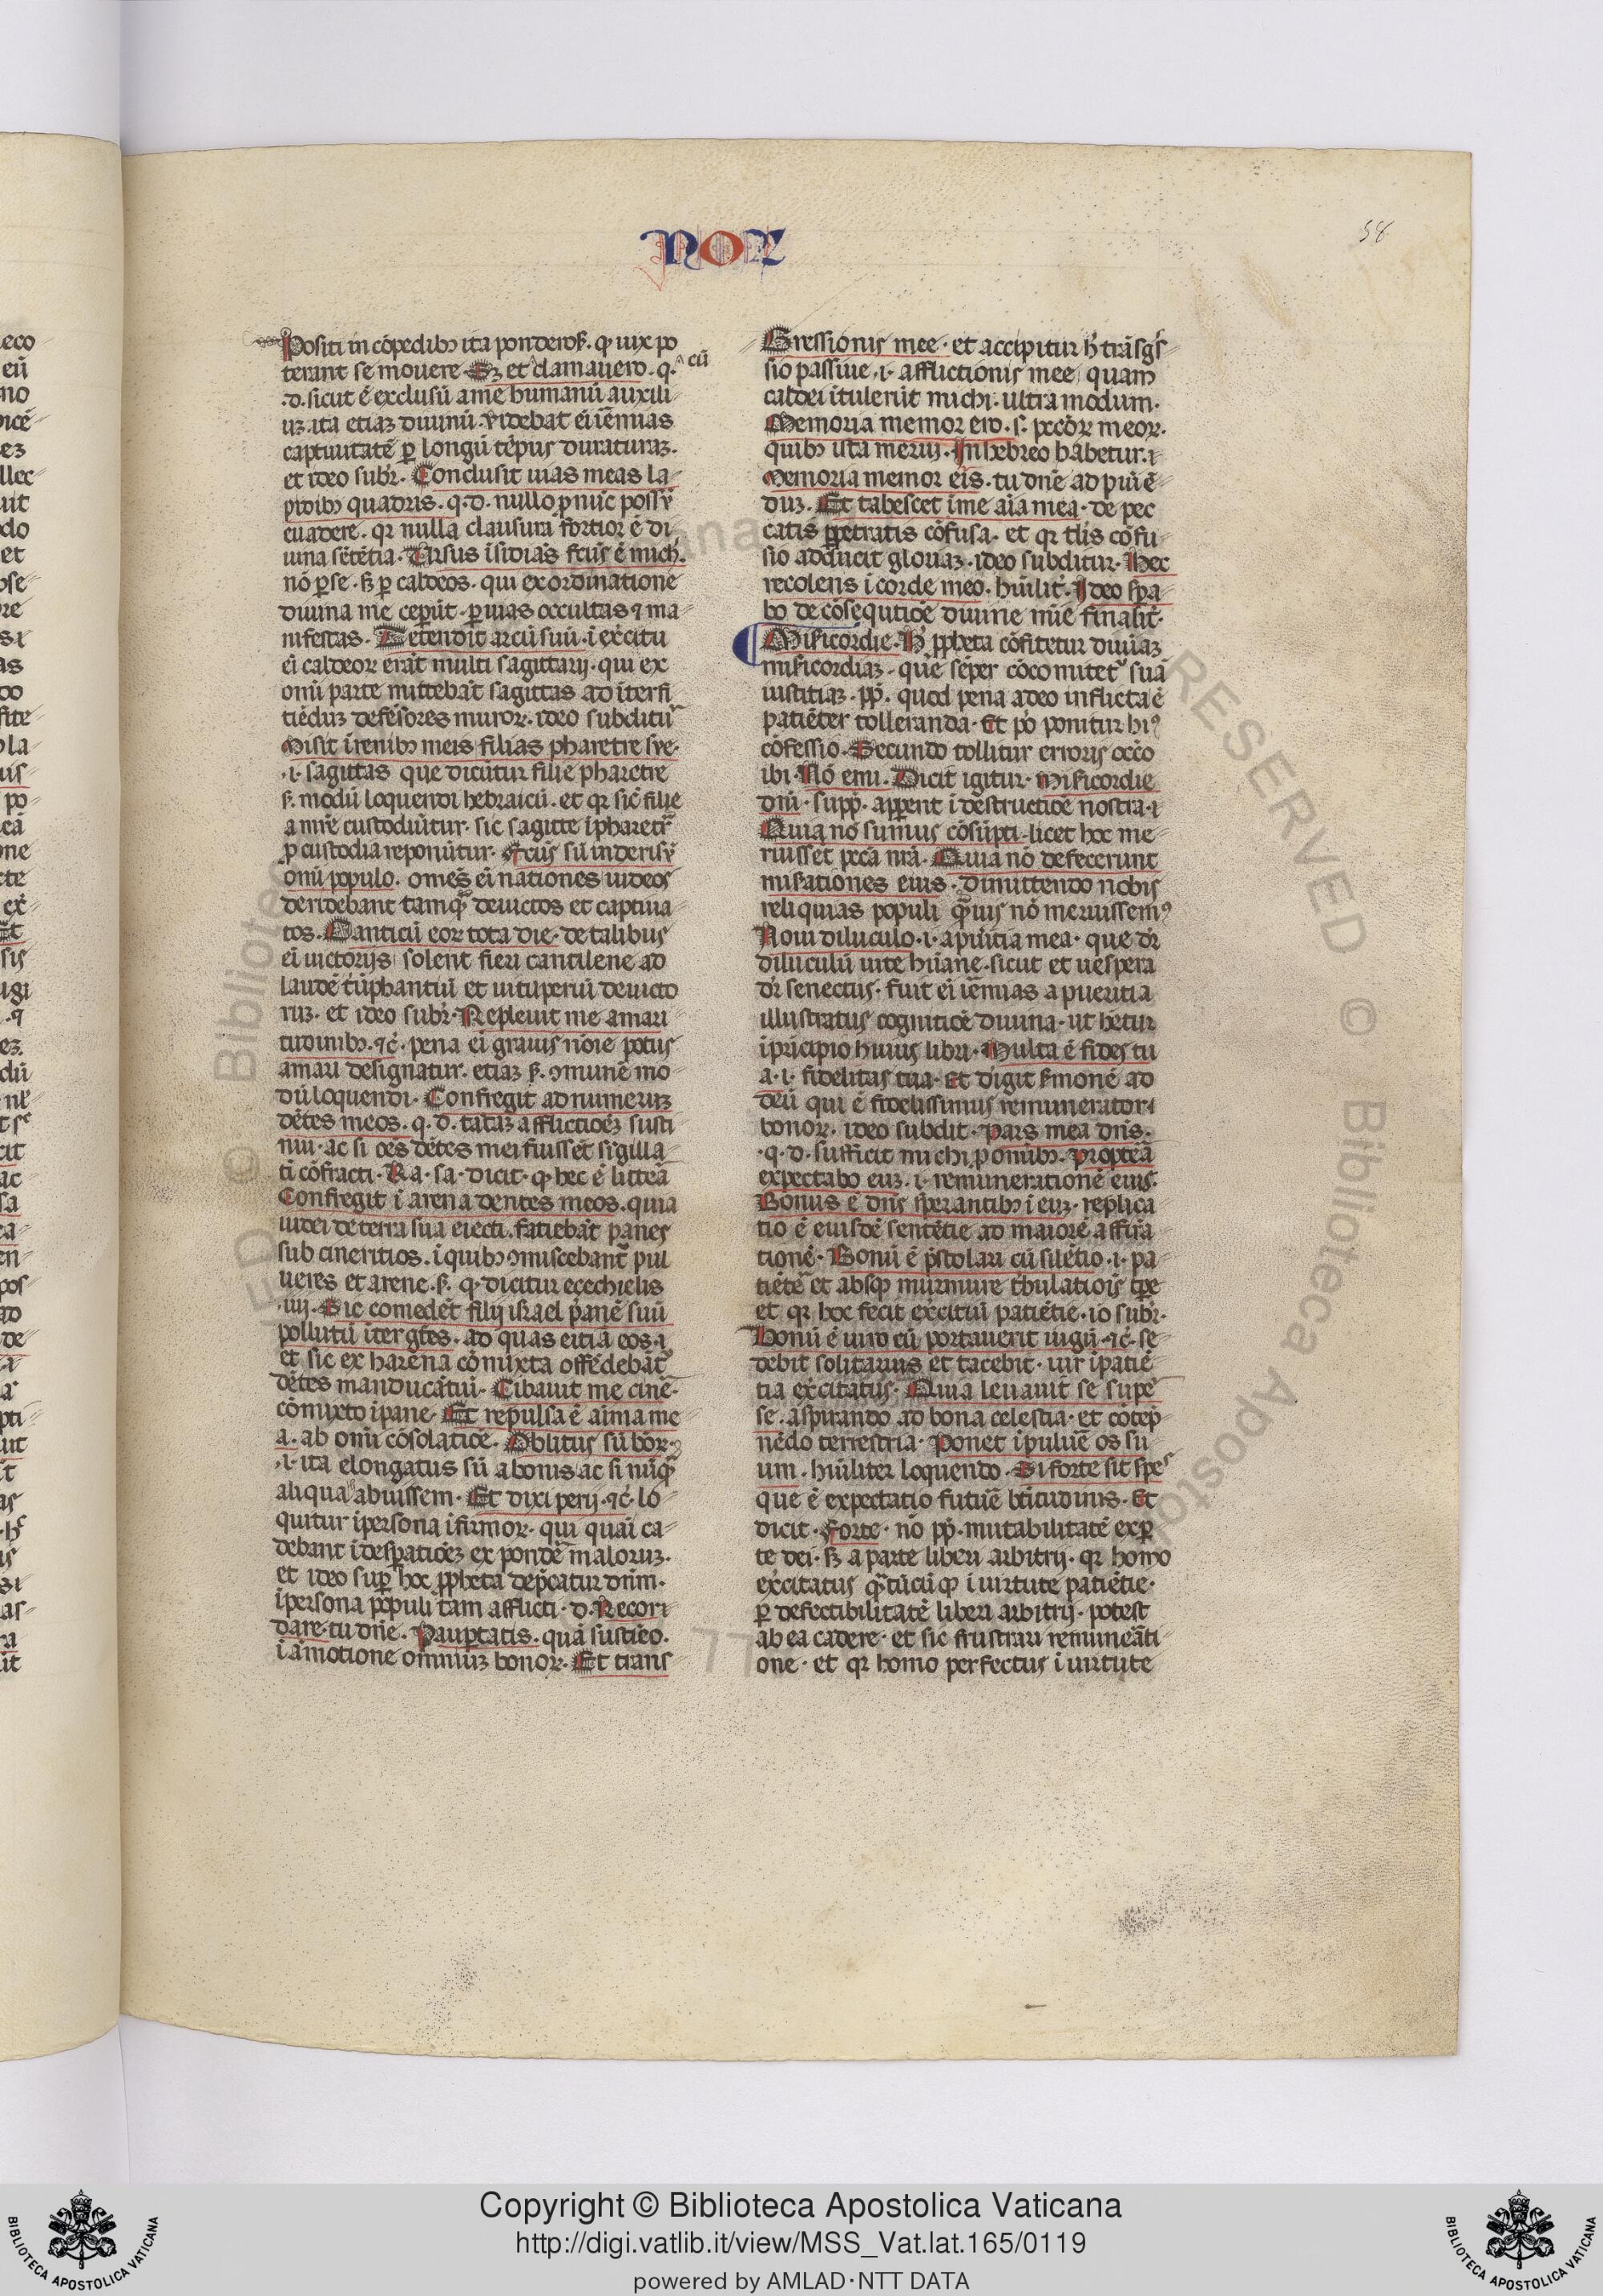 NOR
58
Positi in cōpedibꝫ ita ponderoẜ. ꝙ uix po
terant se mouere. Sꝫ et clamauero. q.
cū
.d. sicut ē exclusū a me humanū auxili
uꝫ. ita etiaꝫ diuinū. videbat ei iēmias
captiuitatē ꝑ longū tēpus duraturaꝫ.
et ideo subr̄. Conclusit uias meas la
pidibꝫ quadris. q.d. nullo p̄ nūc possū
euadere. qr nulla clausura fortior ē di
uina sētētia. Ursus īsidiās fcūs ē mich.
nō ꝑ se. sꝫ ꝑ caldeos. qui ex ordinatione
diuina me ceperūt. ꝑ uias occultas ⁊ ma
nifestas. Tetendit arcū suū. i exc̄itu
ei caldeoꝝ erāt multi sagittarij. qui ex
om̄i parte mittebāt sagittas ad īterfi
tiēduꝫ defēsores muroꝝ. ideo subditū
Misit ī renibꝫ meis filias pharetre sue.
.i. sagittas que dicūtur filie pharetre
ẜ. modū loquendi hebraicū. et qr sic̄ filie
a mr̄e custodiūtur. sic sagitte ī pharetr̄
ꝓ custodia reponūtur. Fcūs sū in derisū
om̄i populo. omēs ei nationes iudeos
deridebant tamꝙ deuictos et captiua
tos. Canticū eoꝝ tota die. de talibus
ei uictorijs solent fieri cantilene ad
laudē tūphantiū et uituperiū deuicto
ruꝫ. et ideo subr̄. Repleuit me amari
tudinibꝫ. ⁊c̄. pena ei grauis nōie potus
amari designatur. etiaꝫ ẜ. ꝯmunē mo
dū loquendi. Confregit ad numeruꝫ
dētes meos. q.d. tātaꝫ afflictiōeꝫ susti
nui. ac si oēs dētes mei fuissēt sigilla
tī cōfracti. Ra. sa. dicit. ꝙ hec ē litterā
Confregit ī arena dentes meos. quia
iudei de terra sua eiecti. fatiebāt panes
sub cineritios. ī quibꝫ ꝯmiscebant̄ pul
ueres et arene. ẜ. q. dicitur ecechielis
.iiij. Sic comedēt filij isrl̄ael pānē suū
pollutū īter gētes. ad quas eitiā eos. ⁊
et sic ex harena cōmixta offēdebāt̄
dētes manducātiū. Cibauit me cinē.
cōmixto ī pane. Et repulsa ē aīma me
a. ab om̄i cōsolatiōe. Oblitus sū bōꝝ.
.i. ita elongatus sū a bonis ac si nūꝙ
aliqua habuissem. Et dixi perij. ⁊c̄. lo
quitur ī persona īfirmoꝝ. qui quāi ca
debant ī desꝑatiōeꝫ ex pondē maloruꝫ.
et ideo suꝑ hoc ꝓpheta dep̄catur dn̄m.
ī persona populi tam afflicti. d. Recori
dare tu dn̄e. Pauꝑtatis. quā sustīeo.
ī amotione omniuꝫ bonoꝝ. Et trans
Gressionis mee. et accipitur h̄ trāsgs̄
sio passiue .i. afflictionis mee quam
caldei ītulerūt michi. ultra modum.
Memoria memor ero. ẜ. pc̄cōꝝ meoꝝ.
quibꝫ ista merui. In hebreo habetur. i
Memoria memor eris. tu dn̄e ad puīē
duꝫ. Et tabescet ī me aīa mea. de pec
catis ꝑpetratis cōfusa. et qr tl̄is cōfu
sio adducit gloriaꝫ. ideo subditur. Hec
recolens ī corde meo. hūilit̄. Ideo sꝑa
bo de cōsequtiōe diuine mīe finalit̄.
Mīsicordie. H̄ ꝓpheta cōfitetur diuiāꝫ
mīsicordiaꝫ. que sēper cōcomitet̄ suā
iustitiaꝫ. ꝓp̄. quod pena a deo inflicta ē
patiēter tolleranda. Et p̄o ponitur hiꝰ
cōfessio. Secundo tollitur erroris occō
ibi. Nō eni. Dicit igitur. Mīsicordie
dn̄i. supp̄. apꝑent ī destructiōe nostra. i
Quia nō sumus cōsūpti. licet hoc me
ruissēt pc̄cā nr̄ā. Quia nō defecerunt
misationes eius. dimittendo nobis
reliquias populi ꝙuis nō meruissemꝰ
Noui diluculo. i. a puitia mea. que dr̄
diluculū uite hūane. sicut et uespera
dr̄ senectus. fuit ei iēmias a pueritia
illustratus cognitiōe diuina. ut hētur
ī prīcipio huius libri. Multa ē fides tu
a. i. fidelitas tua. Et dīgit ẜmonē ad
deū qui ē fidelissimus remunerator
bonoꝝ. ideo subdit. Pars mea dn̄s.
.q.d. sufficit michi p̄ om̄ibꝫ. Propteā
expectabo euꝫ. i. remunerationē eius.
Bonus ē dn̄s sꝑerantibꝫ ī euꝫ. replica
tio ē eiusdē sentētie ad maiorē affirā
tionē. Bonū ē p̄stolari cū silētio. i. pa
tiētē et absqꝫ murmure tbulatiois tꝑe
et qr hoc fecit exc̄itiū patiētie. io subr̄.
Bonū ē uiro cū portauerit iugū. ⁊c̄. se
debit solitarius et tacebit. uir ī patiē
tia exc̄itatus. Quia leuauit se supē
se. aspirando ad bona celestia. et cōtep̄
nēdo terrestria. Ponet ī puluē os su
um. hūiliter loquendo. Si forte sit spes
que ē expectatio futuē btitudinis. Et
dicit. Forte. nō pp̄. mutabilitatē ex ꝑ
te dei. sꝫ a parte liberi arbitrij. qr homo
exc̄itatus ꝙtūcūꝙ ī uirtute patiētie.
ꝑ defectibilitatē liberi arbitrij. potest
ab ea cadere. et sic frustrari remunēati
one. et qr homo perfectus ī uirtute
Copyright © Biblioteca Apostolica Vaticana
http://digi.vatlib.it/view/MSS_Vat.lat.165/0119
powered by AMLAD·NTT DATA
BIBLIOTECA APOSTOLICA VATICANA
BIBLIOTECA APOSTOLICA VATICANA